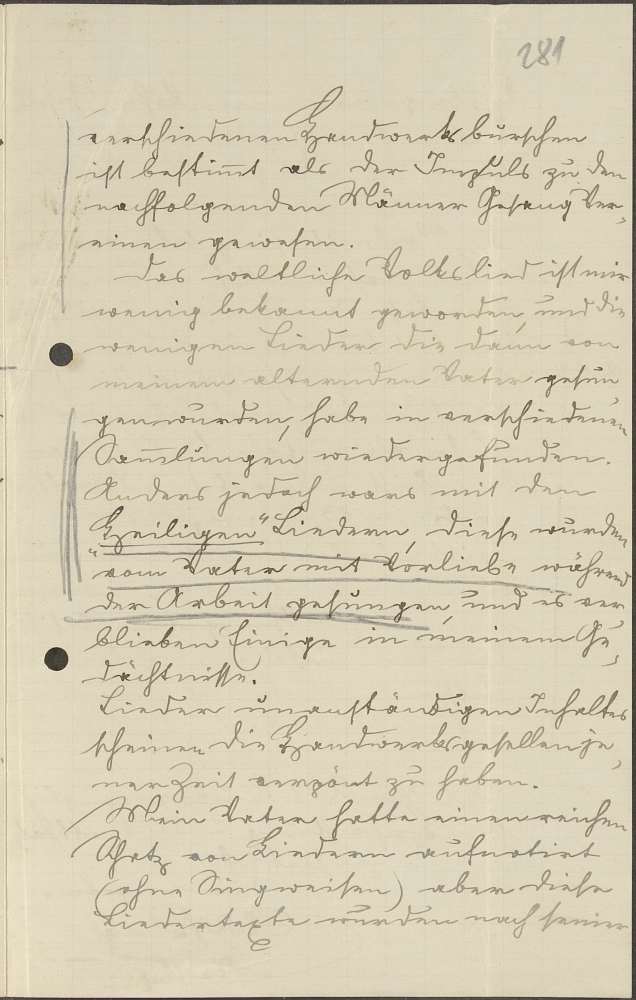 281
verschiedenen Handwerksburschen
ist bestimt als der Impuls zu den
nachfolgenden Männer Gesang Ver-
einen gewesen.
Das weltliche Volkslied ist mir
wenig bekannt geworden, und die
wenigen Lieder die dann von
meinem alternden Vater gesun
gen wurden, habe in verschiedenen
Samlungen wiedergefunden.
Anders jedoch wars mit den
„Heiligen" Liedern, diese wurden
vom Vater mit Vorliebe während
der Arbeit gesungen, und es ver
blieben Einige in meinem Ge-
dächtnisse.
Lieder unanständigen Inhaltes
scheinen die Handwerksgesellen je-
ner Zeit verpönt zu haben.
Mein Vater hatte einen reichen
Schatz von Liedern aufnotirt
(ohne Singweisen) aber diese
Liedertexte wurden nach seiner